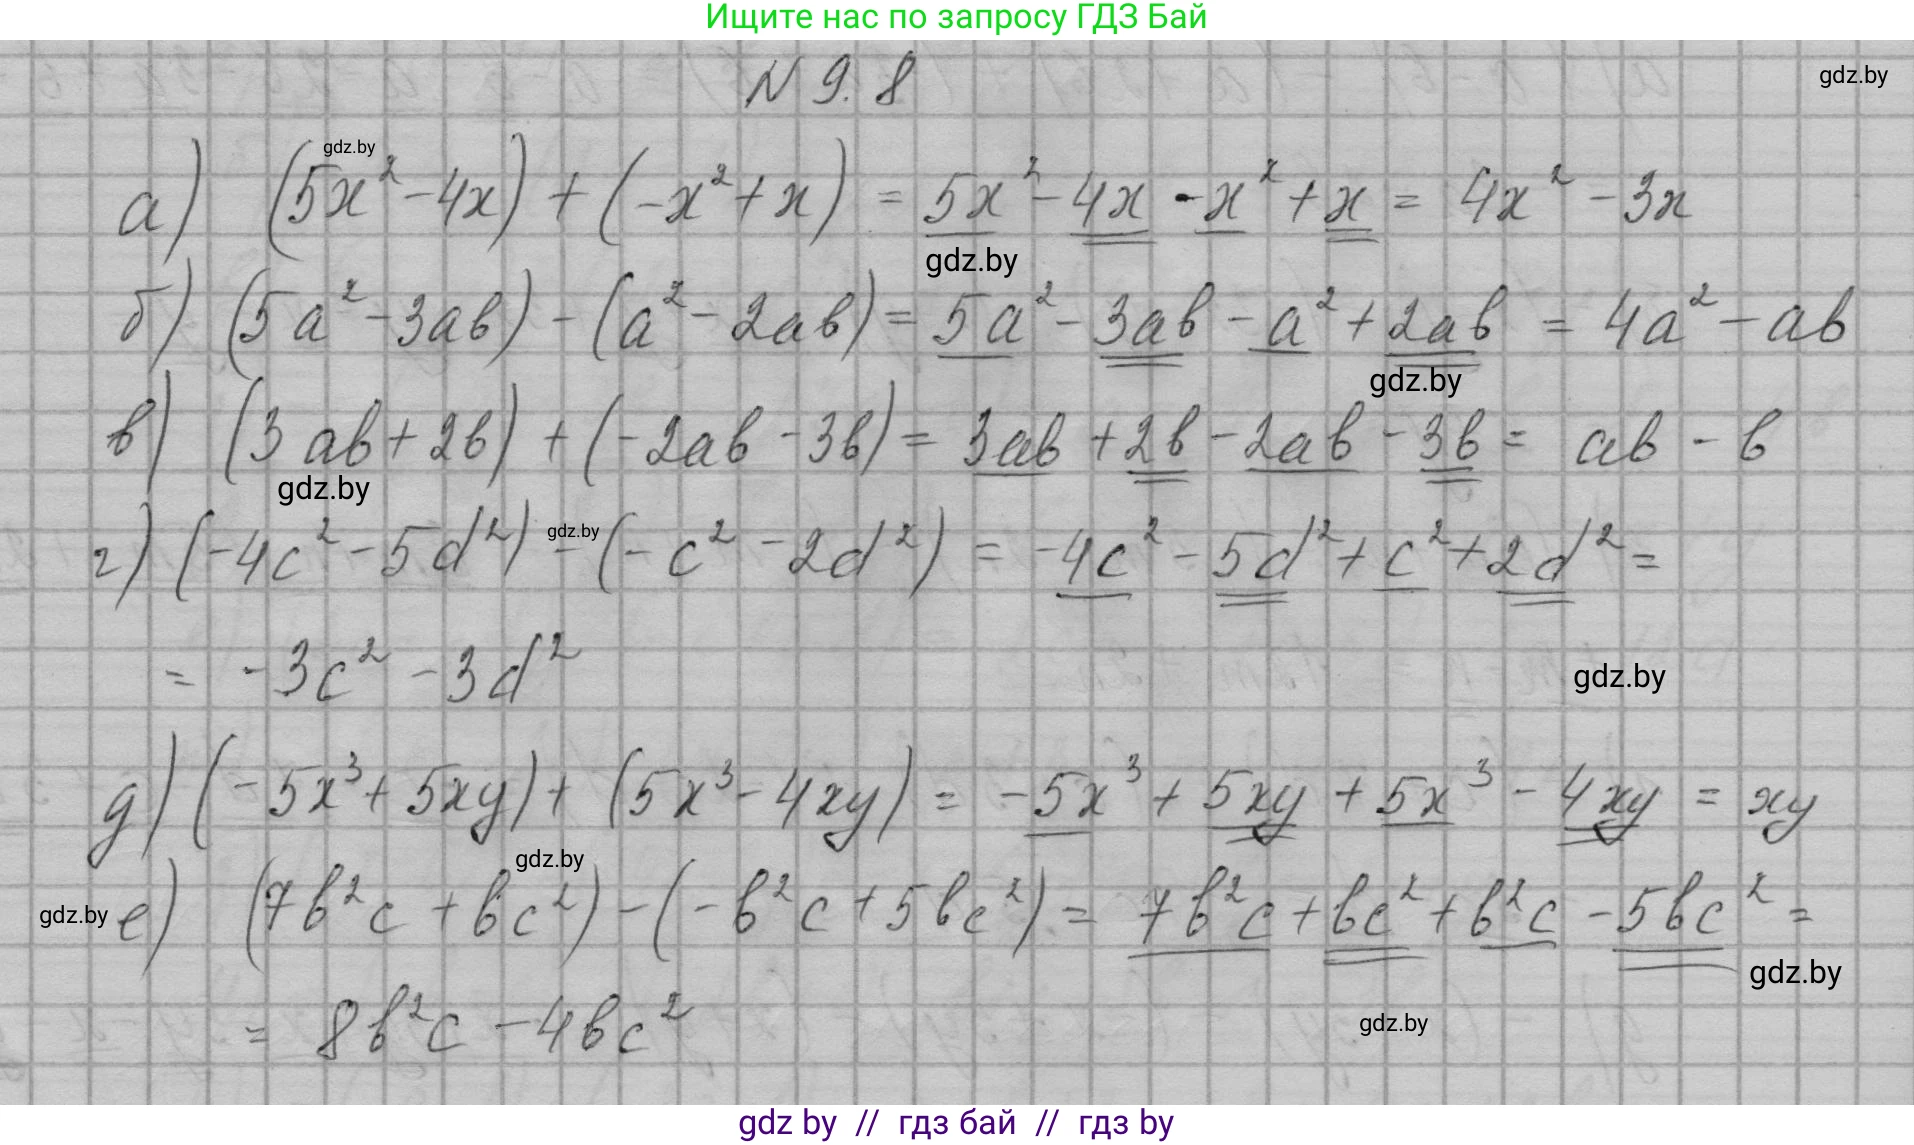 Ищите нас по запросу ГДЗ Бай
N 9.8
gdz.by
gdz.by
а) (5x² - 4x) + (-x² + x) = 5x² - 4x - x² + x = 4x² - 3x
gdz.by
б) (5a² - 3ab) - (a² - 2ab) = 5a² - 3ab - a² + 2ab = 4a² - ab
gdz.by
в) (3ab + 2b) + (-2ab - 3b) = 3ab + 2b - 2ab - 3b = ab - b
gdz.by
gdz.by
г) (-4c² - 5d²) - (-c² - 2d²) = -4c² - 5d² + c² + 2d² =
= -3c² - 3d²
gdz.by
д) (-5x³ + 5xy) + (5x³ - 4xy) = -5x³ + 5xy + 5x³ - 4xy = xy
gdz.by
gdz.by
е) (7b²c + bc²) - (-b²c + 5bc²) = 7b²c + bc² + b²c - 5bc² =
gdz.by
= 8b²c - 4bc²
gdz.by
gdz by // гдз бай // гдз by